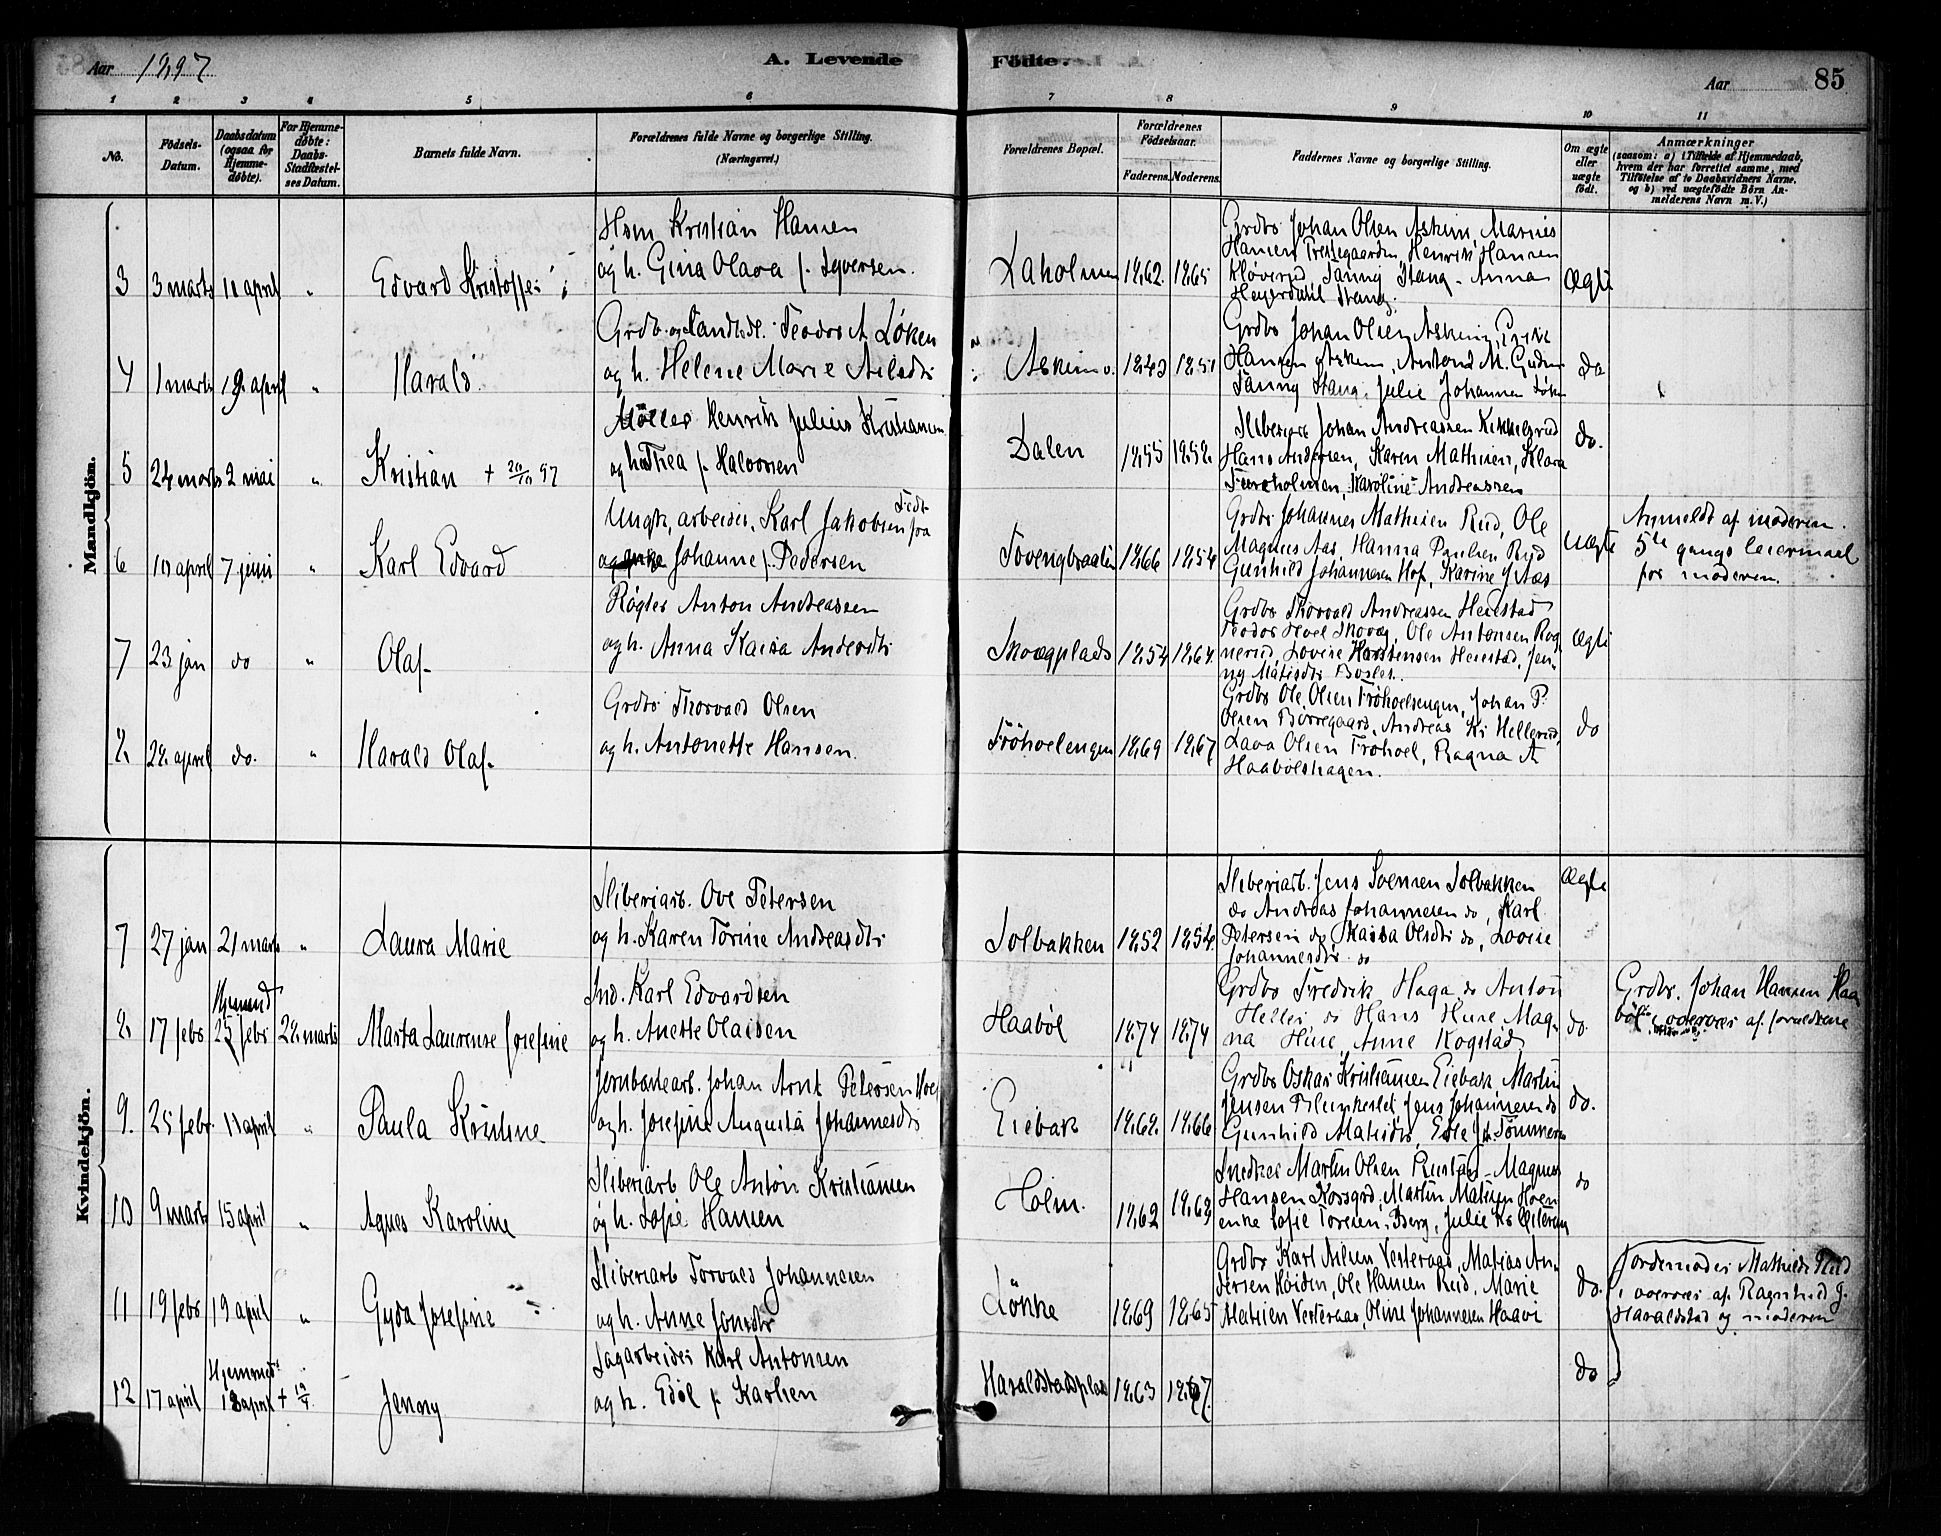 Aar 1897
A. Levende
Födte.
Aar
85
1 2 3 4 5 6 7 8 9 10 11
No.
Födsels-Datum.
Daabsdatum (ogsaa for Hjemme-döbte).
For Hjemme-döbte: Daabs-Stadfæstel-ses Datum.
Barnets fulde Navn.
Forældrenes fulde Navne og borgerlige Stilling. (Næringsvei.)
Forældrenes Bopæl.
Forældrenes Födselsaar.
Faderens. Moderens.
Faddernes Navne og borgerlige Stilling.
Om ægte eller uægte födt.
Anmærkninger
(saasom: a) i Tilfælde af Hjemmedaab,
hvem der har forrettet samme, med
Tilföielse af to Daabsvidners Navne,
og b) ved uægtefödte Börn An-
melderens Navn m. V.)
Mandkjön.
Hsm Kristian Hansen
3 3 marts 11 april " Edvard Kristoffer og h. Gina Olava f. Syversen. Laholmen 1862. 1865 Ægte
Grdbr Johan Olsen Askim, Marius
Hansen Trestegaarden, Henrik Hansen
Kløverud, Fanny Stang - Anna
Heyerdahl Stang.
Grdbr. og Landhdl. Teodor A. Løken
4 1 marts 19 april " Harald og h. Helene Marie Nilsdtr Askim 1843 1851 do
Grdbr Johan Olsen Askim,
Hansen Askim, Antond M.
Fanny Stang, Julie Johannesen
Møller Henrik Julius Kristiansen
5 24 marts 2 mai " Kristian + 20/10 97 og h. Thea f. Halvorsen Dalen 1855 1858. do.
Sliberiarb Johan Andreassen Kykkelsrud
Hans Andersen, Karen Mathisen, Klara
Furuholmen, Karoline Andreassen
Ungk, arbeider, Karl Jakobsen fra
6 10 april 7 juni " Karl Edvard Johanne f. Pedersen Tovengbraaten 1866 1854 uægte
Grdbr Johannes Mathisen Rud, Ole
Magnus Aas, Hanna Paulsen Rud
Gunhild Johannesen Hof, Karine J Aas
Anmeldt af moderen.
5te gangs leiermaal
for moderen.
Røgter Anton Andreassen
7 23 jan do " Olaf og h. Anna Kaisa Andersdtr Skovgplads 1854 1864. Ægte
Grdbr Thorvald Andreassen Heiestad
Teodor Hoel Skovg, Ole Antonsen Rog
nerud, Lovise Torstensen Heiestad, Jen-
ny Matisdtr
Grdbr Thorvald Olsen
8. 28. april do. " Harald Olaf og h. Antonette Hansen. Fröhoelengen 1869 1867 do
Grdbr Ole Olsen Fröhoelsengen, Johan P.
Olsen Borregaard, Andreas Kr Hellerud,
Lava Olsen Frøhoel, Ragna A
Haabølshagen.
Kvindekjön.
Sliberiarb. Ove Petersen
7 27 jan 21 marts " Laura Marie og h. Karen Torine Andreasdtr Solbakken 1852 1854. Ægte
Sliberiarb. Jens Svensen Solbakken
do Andreas Johannesen do, Karl
Petersen do, Kaisa Olsdtr do, Lovise
Johannesdtr do
Ind. Karl Edvardsen
8. 17 febr Hjemmd 25 febr 28. marts Marta Laurense Josefine og h. Anette Olaisen Haabøl 1874 1874 do.
Grdbr Fredrik Haga do Anton
Heller do Hans Huse Mag-
na Huse, Anne Kogstad
Grdbr. Johan Hansen Haa
bøl i overvær af forældrene
Jernbanearb. Johan Arnt Petersen
9. 25 febr. 11 april " Paula Kristine og h. Josefine Augusta Johannesdtr Eiebak 1862. 1866 do.
Grdbr Oskar Kristiansen Eiebak Martin
Jensen, Jens Johannesen do
Gunhild Matisdtr,
Sliberiarb Ole Anton Kristiansen
10 9 marts 15 april " Agnes Karoline og h. Sofie Hansen Holm. 1862 1863 do
Snedker Martin Olsen Rustad - Magnus
Hansen Korsgrd, Martin Matisen Hoen
enke Sofie Toresen, Berg, Julie Kr
Sliberiarb Torvald Johannesen
11 19 febr 19 april " Gyda Josefine og h. Anne Jonsdtr Løkke 1869 1865 do.
Grdbr Karl Nilsen Vesteraas, Matias An-
dersen Høiden, Ole Hansen Rud, Marie
Matisen Vesteraas, Oline Johannesen Haavi
Sagarbeider Karl Antonsen
12 17 april Hjemmed 18 april + 19/4 Jenny og h. Edel f. Karlsen Haraldstadplads 1863 1867. do
Jordemoder Mathilde Rud
i overvær af Ragnhild G.
Haraldstad og moderen